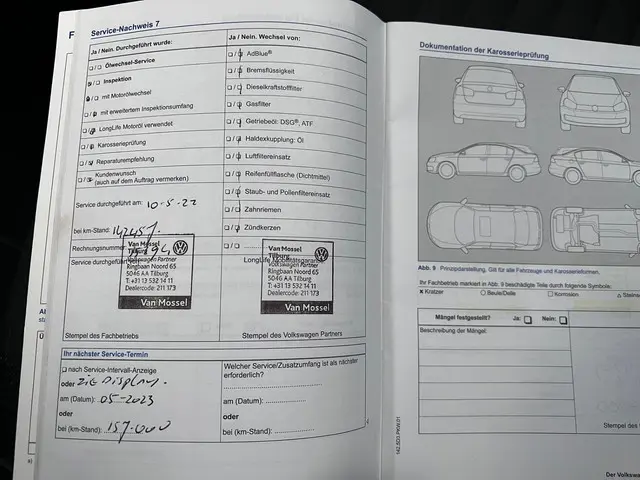 Service-Nachweis 7
Ja / Nein. Durchgeführt wurde:
Ölwechsel-Service
Inspektion
mit Motorölwechsel
mit erweitertem Inspektionsumfang
LongLife Motoröl verwendet
Karosserieprüfung
Reparaturempfehlung
Kundenwunsch
(auch auf dem Auftrag vermerken)
Service durchgeführt am: 10-5-22
bei km-Stand:
Rechnungsnummer:
Service durchgeführt
Van Mossel
Tilburg
Volkswagen Partner
Ringbaan Noord 65
5046 AA Tilburg
T: +31 13 532 14 11
Dealercode: 211 173
Van Mossel
Stempel des Fachbetriebs
Ja / Nein. Wechsel von:
AdBlue®
Bremsflüssigkeit
Dieselkraftstofffilter
Gasfilter
Getriebeöl: DSG®, ATF
Haldexkupplung: Öl
Luftfiltereinsatz
Reifenfüllflasche (Dichtmittel)
Staub- und Pollenfiltereinsatz
Zahnriemen
Zündkerzen
LongLife Mobilitätsgarantie
Van Mossel
Tilburg
Volkswagen Partner
Ringbaan Noord 65
5046 AA Tilburg
T: +31 13 532 14 11
Dealercode: 211 173
Van Mossel
Stempel des Volkswagen Partners
Ihr nächster Service-Termin
nach Service-Intervall-Anzeige
oder ZIE DISPLAY.
am (Datum): 05-2023
oder
bei (km-Stand): 157.000
Welcher Service/Zusatzumfang ist als nächster
erforderlich?
am (Datum):
oder
bei (km-Stand):
Dokumentation der Karosserieprüfung
Abb. 9 Prinzipdarstellung. Gilt für alle Fahrzeuge und Karosserieformen.
Ihr Fachbetrieb markiert in Abb. 9 beschädigte Teile durch folgende Symbole:
x Kratzer
Beule/Delle
Korrosion
Mängel festgestellt? Ja: Nein:
Beschreibung der Mängel:
Stempel des
Der Volkswa